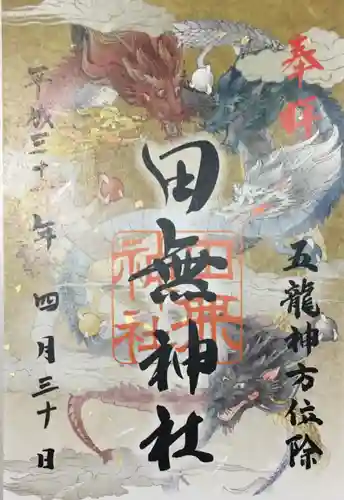 奉拝
五龍神方位除
田無神社
田無神社
平成三十一年四月三十日